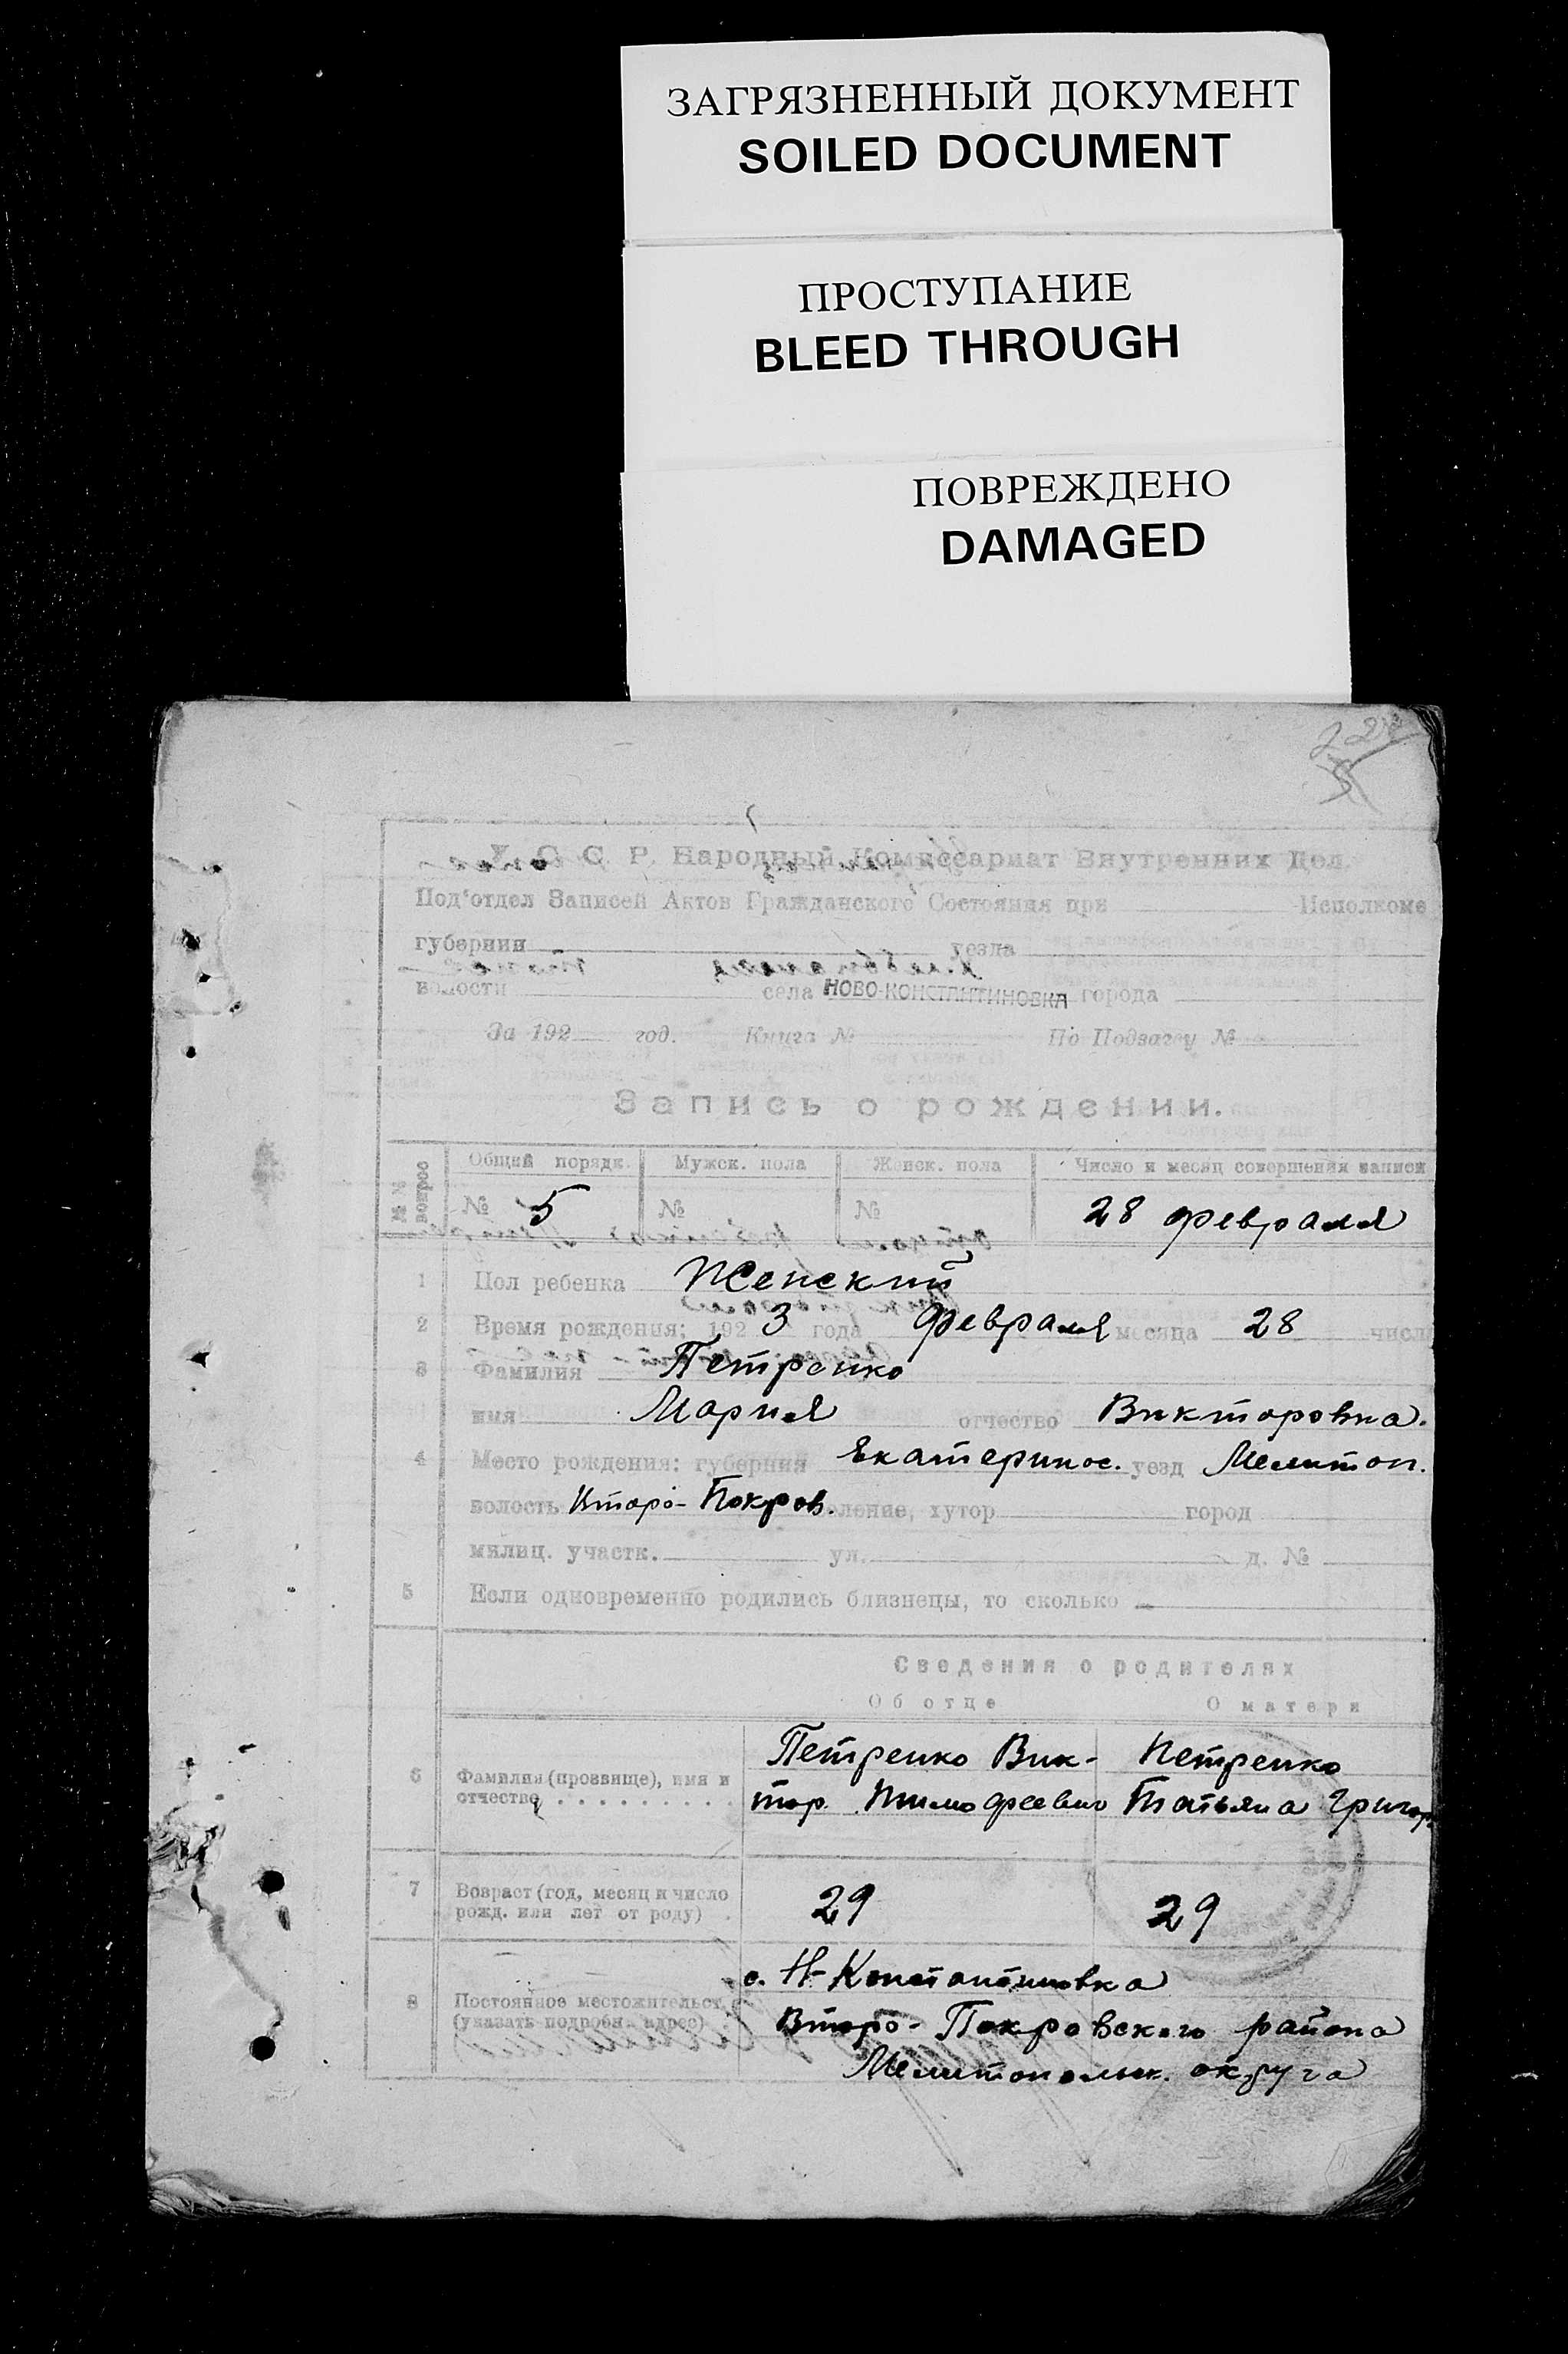 ЗАГРЯЗНЕННЫЙ ДОКУМЕНТ
SOILED DOCUMENT
ПРОСТУПАНИЕ
BLEED THROUGH
ПОВРЕЖДЕНО
DAMAGED
С. С. Р. Народный Комиссариат Внутренних Дел.
Под'отдел Записей Актов Гражданского Состояния при Исполкоме
губернии уезда
волости села НОВО-КОНСТАНТИНОВКА города
За 192 год. Книга № По Подзагсу №
Запись о рождении.
№№ вопрос Общий порядк. Мужск. пола Женск. пола Число и месяц совершения записи
№ 5 № № 28 февраля
1 Пол ребенка Женский
2 Время рождения: 192 3 года февраля месяца 28 числа
3 Фамилия Петренко
имя Мария отчество Викторовна.
4 Место рождения: губерния Екатеринос. уезд Мелитоп.
волость Второ-Покров. хутор город
милиц. участк. ул. д. №
5 Если одновременно родились близнецы, то сколько —
Сведения о родителях
Об отце О матери
6 Фамилия (прозвище), имя и
отчество
Петренко Вик- Петренко
тор Тимофеевич Татьяна Григор.
7 Возраст (год, месяц и число
рожд. или лет от роду)
29 29
8 Постоянное местожительст.
(указать подробн. адрес)
с. Н-Константиновка
Второ-Покровского района
Мелитопольск. округа